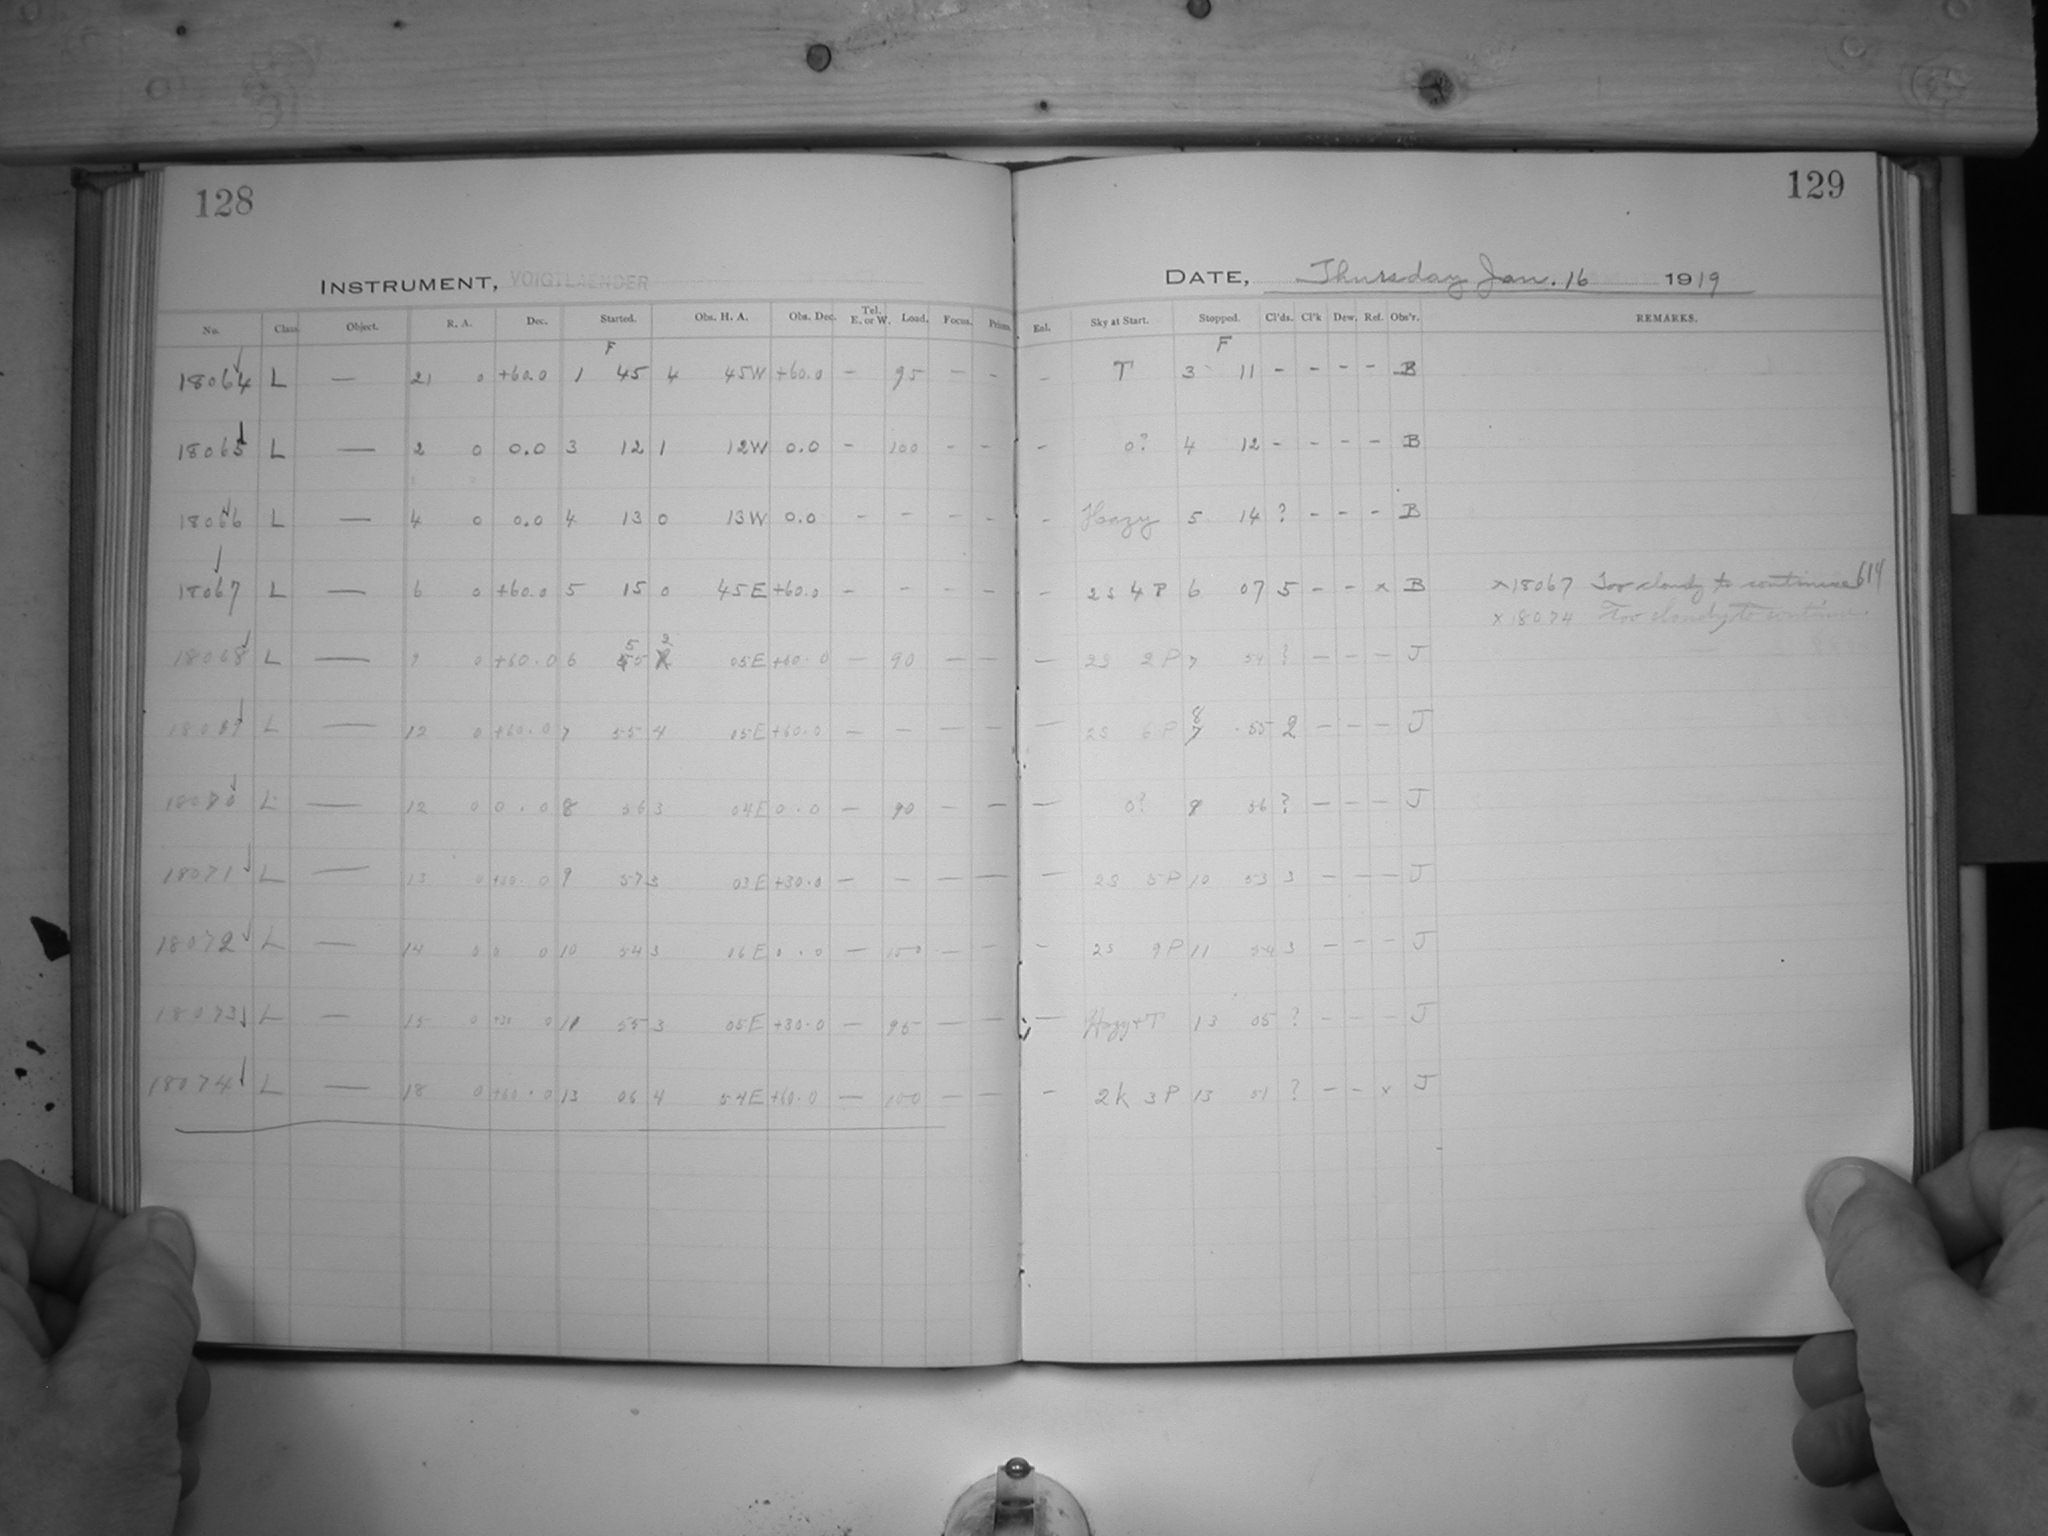 128
129
INSTRUMENT, VOIGTLAENDER
DATE, Thursday Jan. 16 1919
No. Class. Object. R. A. Dec. Started. Obs. H. A. Obs. Dec. Tel. E. or W. Load. Focus. Prism. Eol. Sky at Start. Stopped. Cl'ds. Cl'k Dew. Ref. Obs'r. REMARKS.
F F
18064 L — 21 0 +60.0 1 45 4 45W +60.0 — 95 — — — T 3 11 - - - - B
18065 L — 2 0 0.0 3 12 1 12W 0.0 — 100 — — — 0? 4 12 - - - - B
18066 L — 4 0 0.0 4 13 0 13W 0.0 — — — — — Hazy 5 14 ? - - - B
18067 L — 6 0 +60.0 5 15 0 45E +60.0 — — — — — 2s 4 P 6 07 5 - - x B x18067 Too cloudy to continue 614
x18074 Too cloudy to continue
18068 L — 9 0 +60.0 6 55 2 05E +60.0 — 90 — — — 2s 2P 7 54 ? — — — J
18069 L — 12 0 +60.0 7 55 4 05E +60.0 — — — — — 2s 6P 8 55 2 — — — J
18070 L — 12 0 0.0 8 56 3 04E 0.0 — 90 — — — 0? 9 56 ? — — — J
18071 L — 13 0 +30.0 9 57 3 03E +30.0 — — — — — 2s 5P 10 53 3 — — — J
18072 L — 14 0 0 0 10 54 3 06E 0.0 — 100 — — — 2s 9P 11 54 3 — — — J
18073 L — 15 0 +30 0 11 55 3 05E +30.0 — 95 — — — Hazy+T 13 05 ? — — — J
18074 L — 18 0 +60.0 13 06 4 54E +60.0 — 100 — — — 2k 3P 13 51 ? — — x J